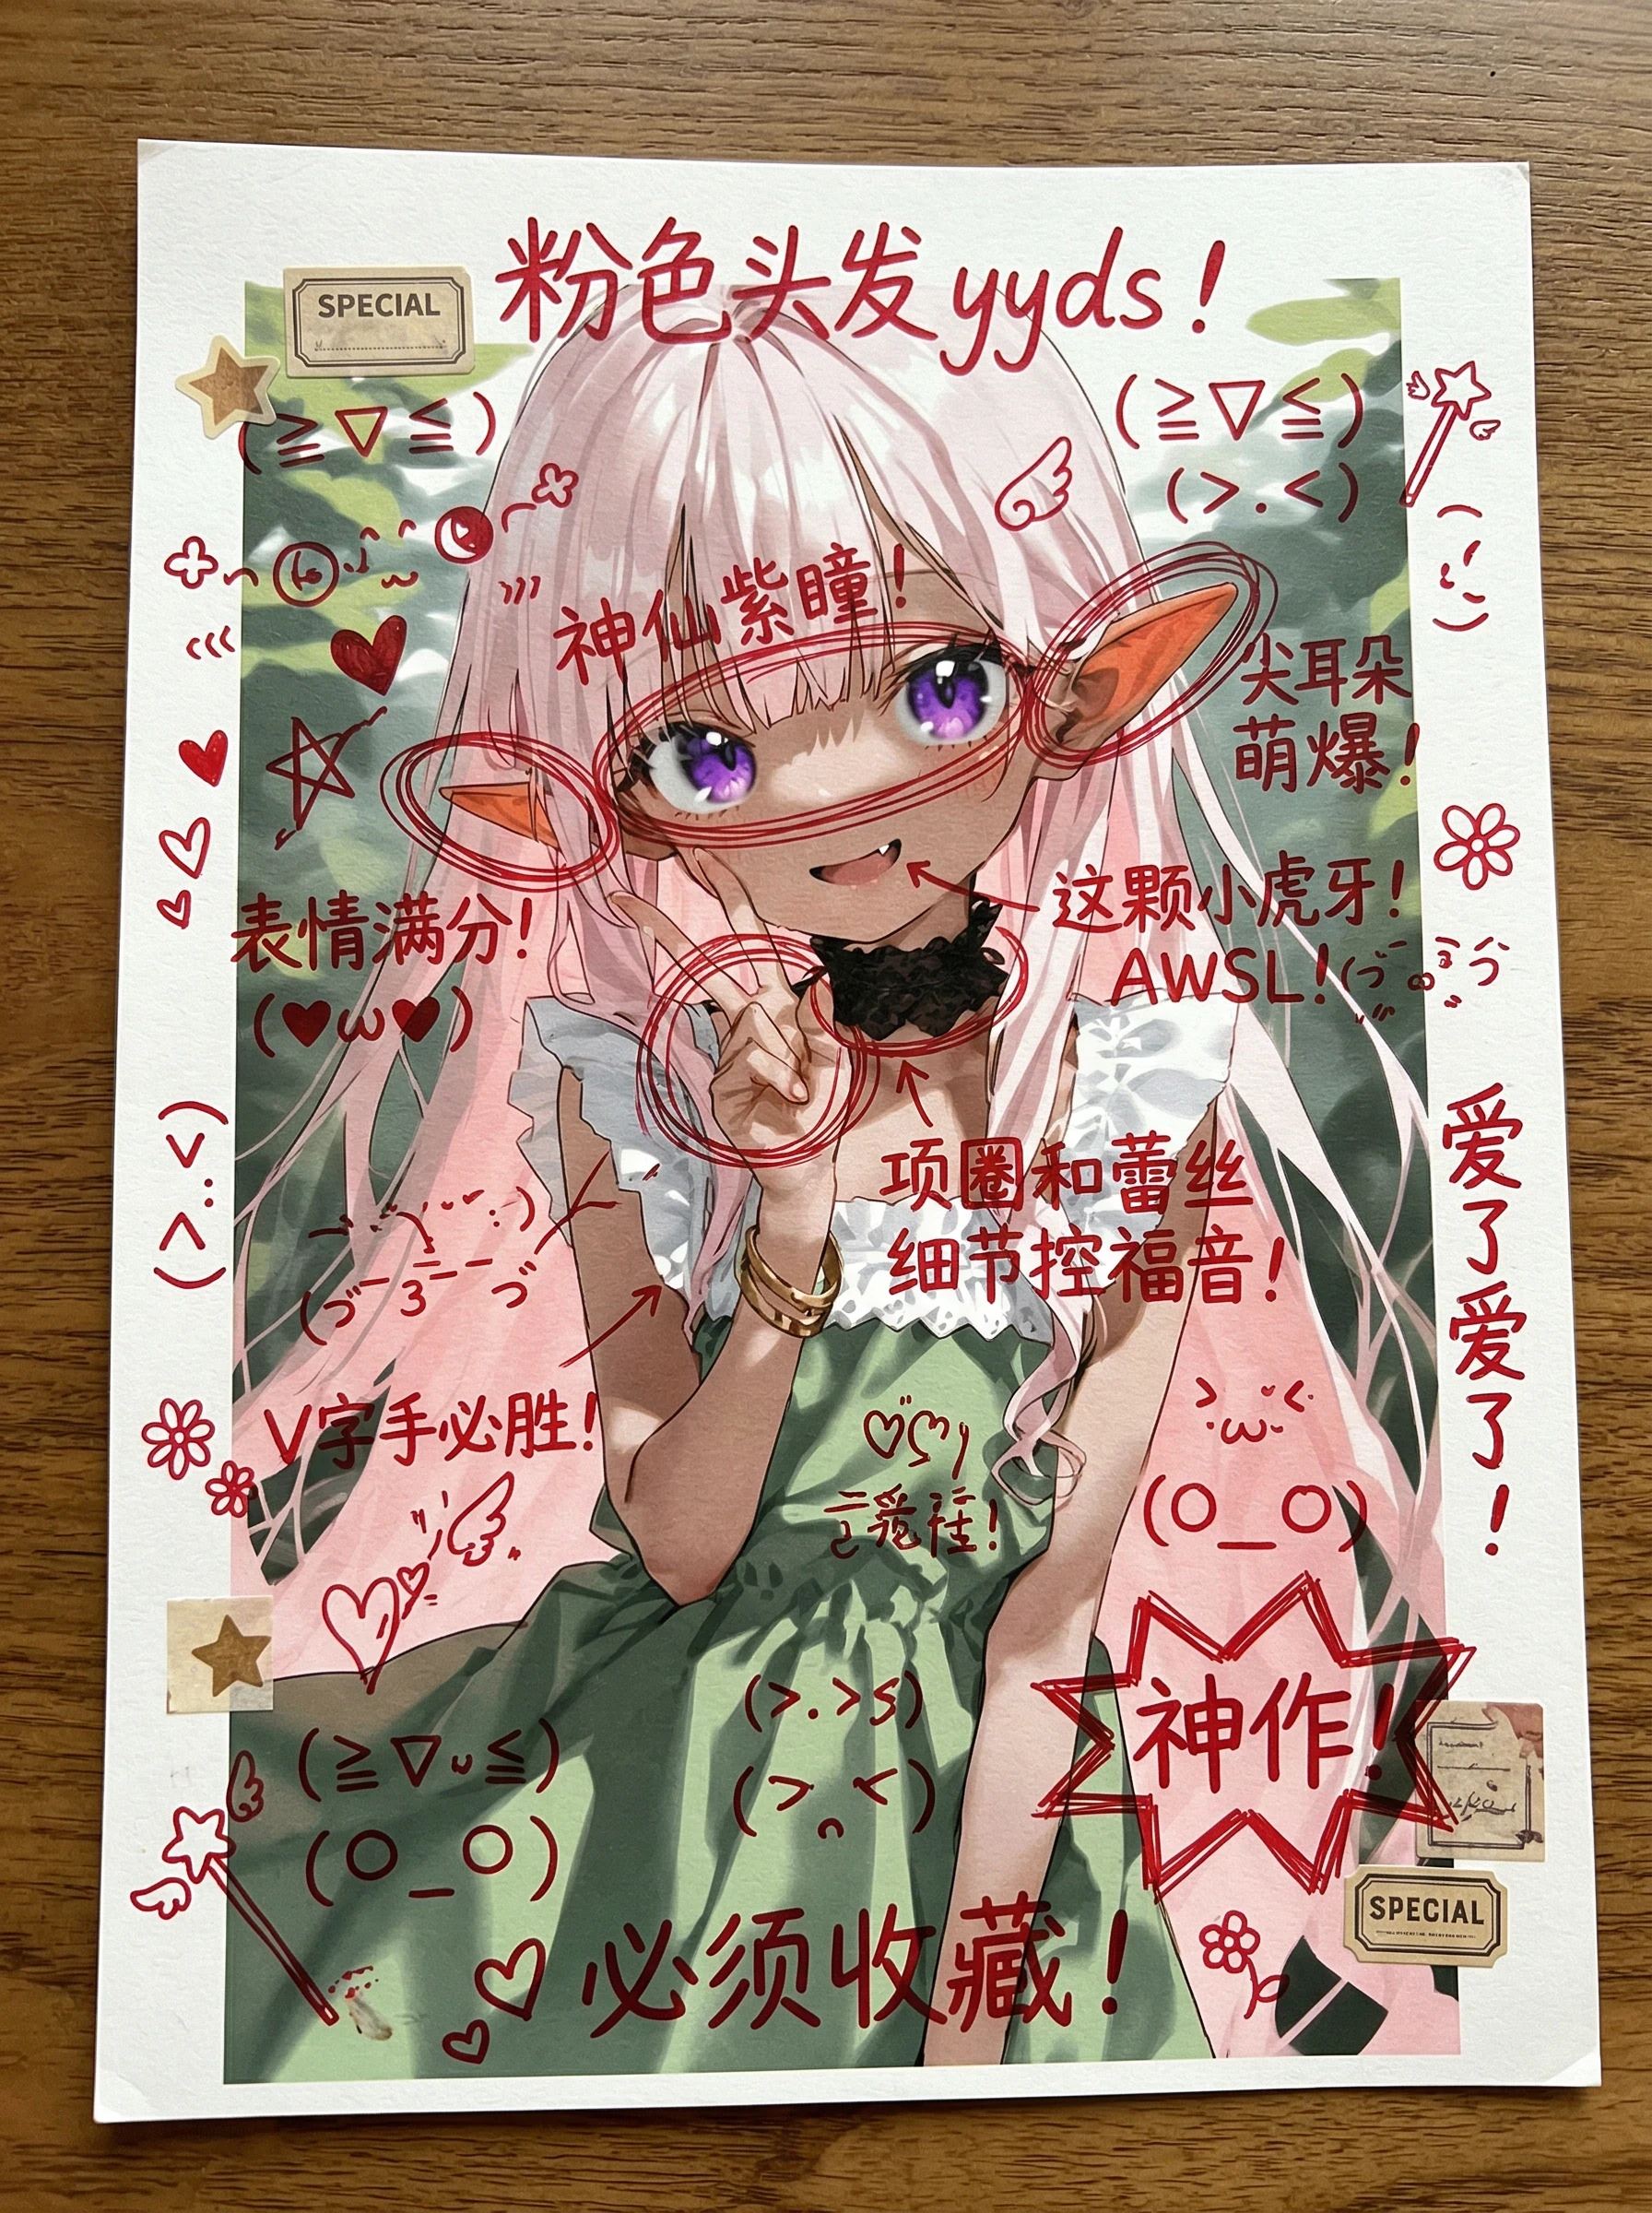 粉色头发yyds！
SPECIAL
(≧▽≦)
(≧▽≦)
(>.<)
神仙紫瞳！
尖耳朵
萌爆！
这颗小虎牙！
AWSL！
表情满分！
(♥ω♥)
项圈和蕾丝
细节控福音！
爱了爱了！
V字手必胜！
(O_O)
神作！
(O_O)
SPECIAL
必须收藏！